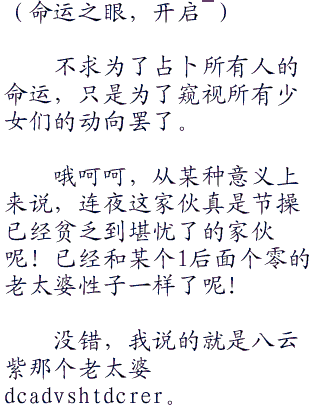 （命运之眼，开启）
不求为了占卜所有人的
命运，只是为了窥视所有少
女们的动向罢了。
哦呵呵，从某种意义上
来说，连夜这家伙真是节操
已经贫乏到堪忧了的家伙
呢！已经和某个1后面个零的
老太婆性子一样了呢！
没错，我说的就是八云
紫那个老太婆
dcadvshtdcrer。